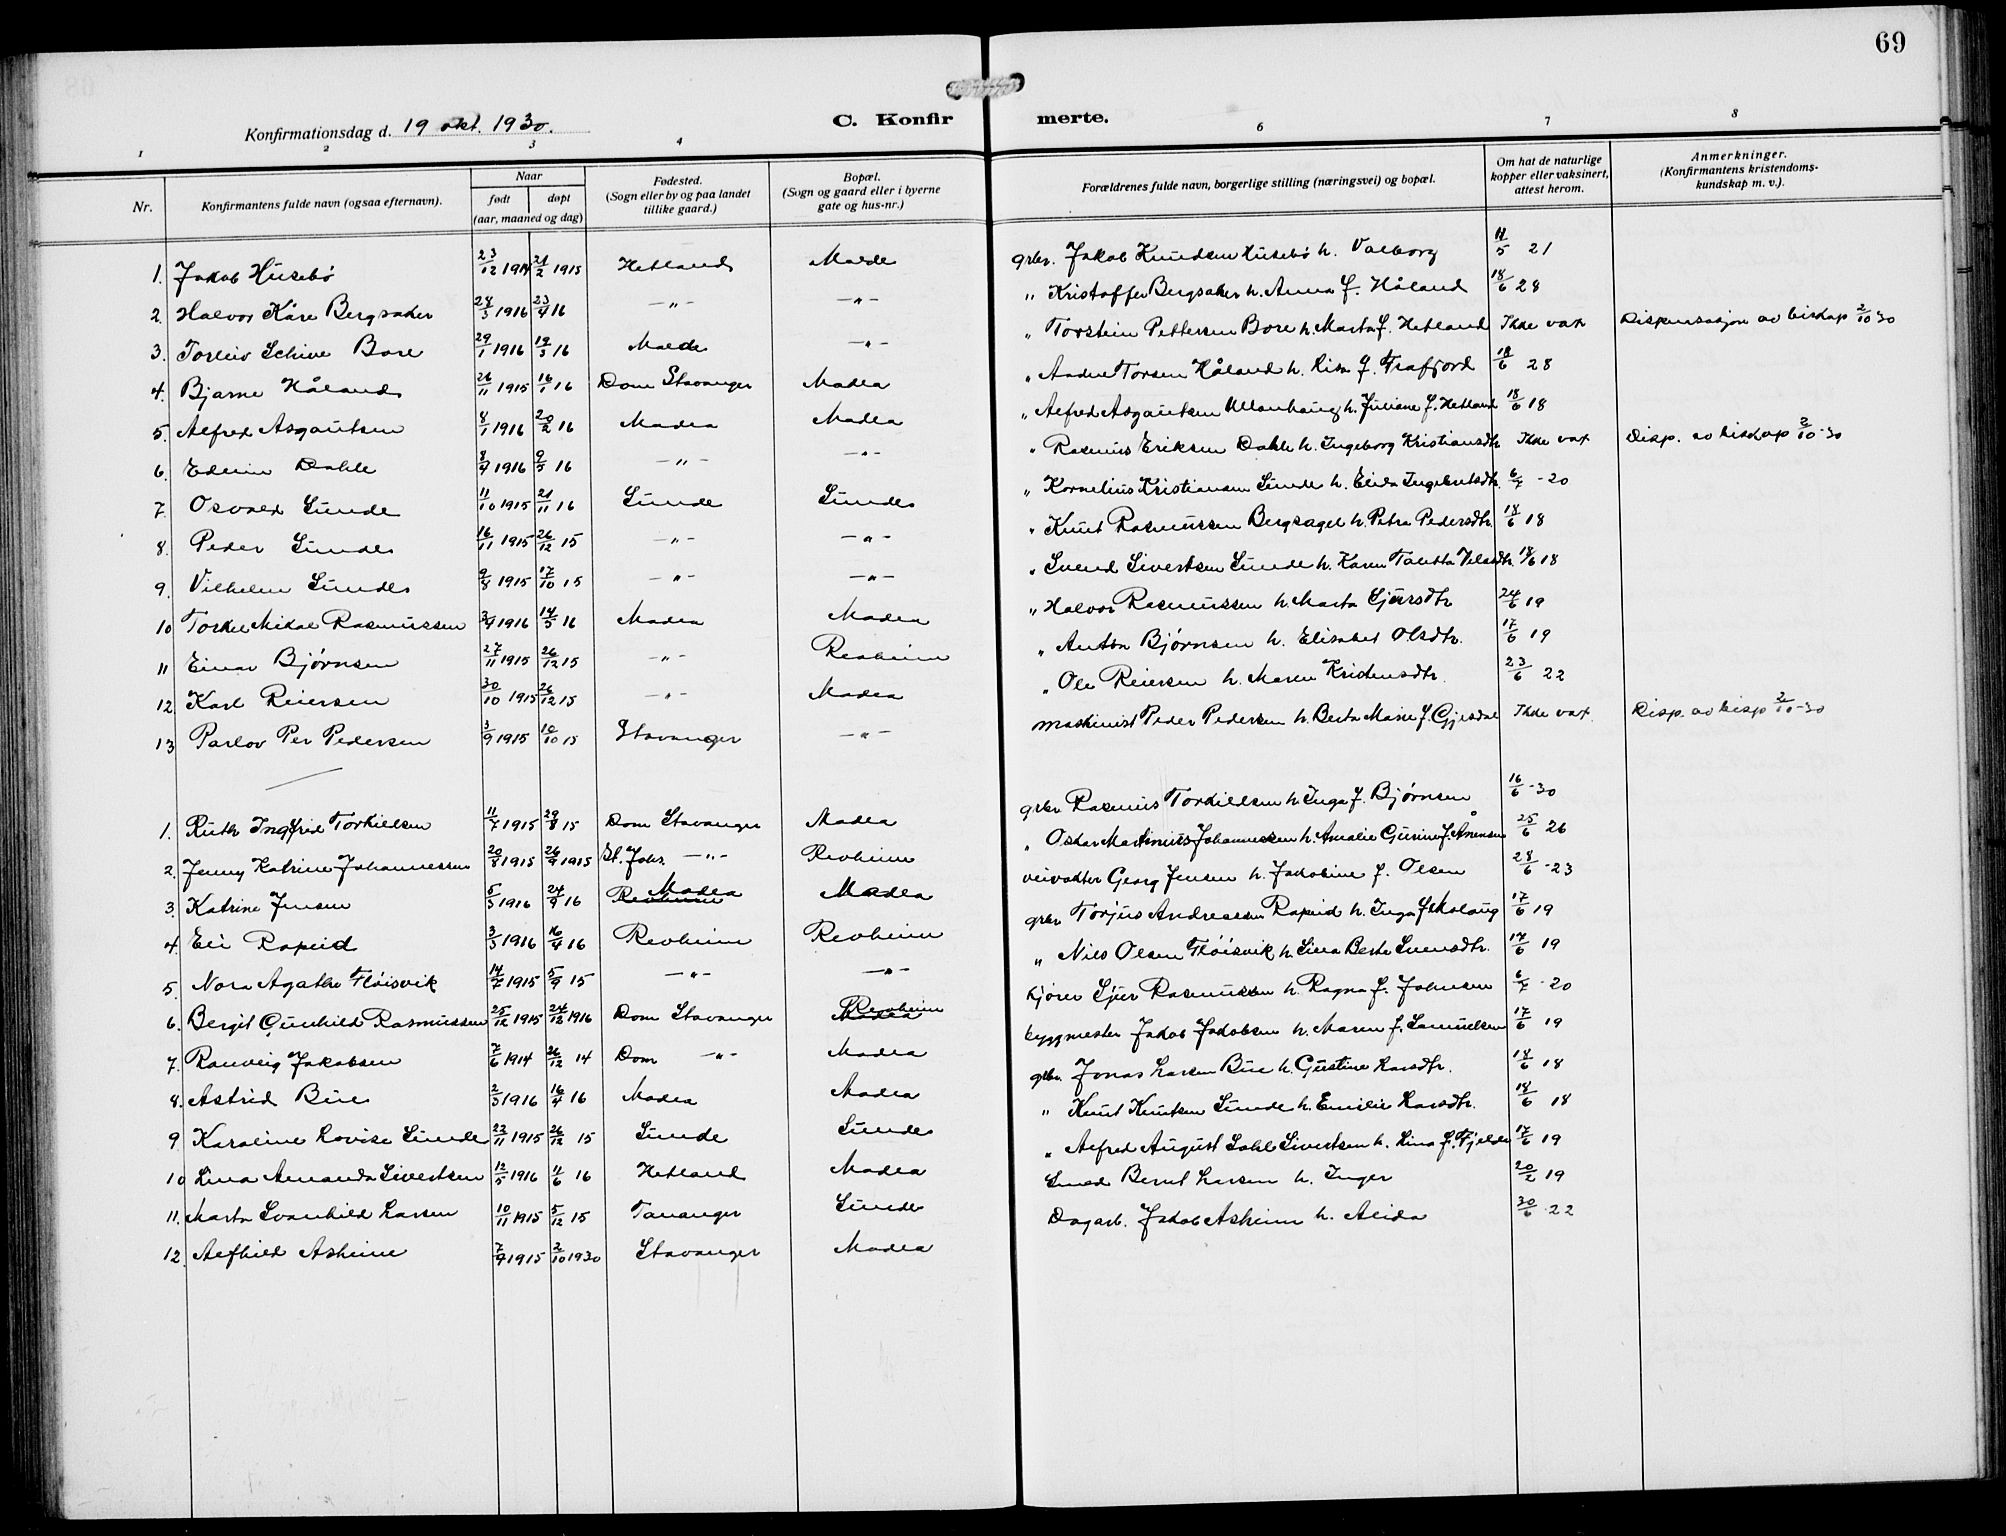 69
Konfirmationsdag d. 19 okt. 1930.
C. Konfirmerte.
1 2 3 4 6 7 8
Nr. Konfirmantens fulde navn (ogsaa efternavn). Naar født døpt (aar, maaned og dag) Fødested. (Sogn eller by og paa landet tillike gaard.) Bopæl. (Sogn og gaard eller i byerne gate og hus-nr.) Forældrenes fulde navn, borgerlige stilling (næringsvei) og bopæl. Om hat de naturlige kopper eller vaksinert, attest herom. Anmerkninger. (Konfirmantens kristendomskundskap m. v.).
1. Jakob Husebø 23/12 1914 21/2 1915 Hetland Malde grbr. Jakob Knudsen Husebø h. Valborg 11/5 21
2. Halvor Kåre Bergsaker 24/3 1916 23/4 16 —"— —"— " Kristoffer Bergsaker h. Anna f. Håland 18/6 28
3. Torleiv Schive Bore 29/1 1916 19/3 16 Malde —"— " Torstein Pettersen Bore h. Marta f. Hetland Ikke vax Dispensasjon av biskop 2/10 30
4. Bjarne Håland 26/11 1915 16/1 16 Dom Stavanger Madla " Andre Torsen Håland h. Lisa f. Frafjord 18/6 28
5. Alfred Asgautsen 8/1 1916 20/2 16 Madla Madla " Alfred Asgautsen Ullenhaug h. Juliane f. Hetland 18/6 18
6. Edvin Dahle 8/4 1916 9/5 16 —"— —"— " Rasmus Eriksen Dahle h. Ingeborg Kristiansdtr Ikke vax Disp. av biskop 2/10 -30
7. Osvald Sunde 11/10 1915 21/11 16 Sunde Sunde " Kornelius Kristiansen Sunde h. Elida Ingebretsdtr. 6/7 -20
8. Peder Sunde 16/11 1915 26/12 15 —"— —"— " Knut Rasmussen Bergsagel h. Petra Pedersdtr. 18/6 18
9. Vilhelm Sunde 9/8 1915 17/10 15 —"— —"— " Svend Sivertsen Sunde h. Karen 18/6 18
10 Torkel Mikal Rasmussen 3/4 1916 14/5 16 Madla Madla " Halvor Rasmussen h. Marta Sjursdtr 24/6 19
11 Einar Bjørnsen 27/11 1915 26/12 15 —"— Revheim " Anton Bjørnsen h. Elisabet Olsdtr. 17/6 19
12. Karl Reiersen 30/10 1915 26/12 15 —"— Madla " Ole Reiersen h. Maren Kristensdtr. 23/6 22
13 Parlov Per Pedersen 3/9 1915 10/10 15 Stavanger —"— maskinist Peder Pedersen h. Berta Marie f. Gjesdal Ikke vax. Disp. av bisp 2/10 -30
1. Ruth Ingfrid Torkildsen 11/7 1915 29/8 15 Dom Stavanger Madla grbr Rasmus Torkildsen h. Inga f. Bjørnsen 16/6 -30
2. Jenny Katrine Johannessen 20/8 1915 26/9 1915 St. Joh. —"— Revheim " Oskar Martinius Johannessen h. Amalie Gurine f. Ånensen 25/6 26
3. Katrine Jensen 5/3 1916 24/4 16 Revheim Madla Madla veivokter Georg Jensen h. Jakobine f. Olsen 28/6 -23
4. Eli Rapeid 3/3 1916 16/4 16 Revheim Revheim grbr Torjus Andreassen Rapeid h. Inga f. Molaug 17/6 19
5. Nora Agathe Fløisvik 14/7 1915 5/9 15 —"— —"— " Nils Olsen Fløisvik h. Lina Berta Svensdtr. 17/6 19
6. Bergit Gunhild Rasmussen 25/12 1915 24/12 1916 Dom Stavanger Madla Revheim kjører Sjur Rasmussen h. Ragna f. Johnsen 6/7 -20
7. Ranveig Jakobsen 7/6 1914 26/12 14 Dom —"— Madla byggmester Jakob Jakobsen h. Maren f. Samuelsen 17/6 19
8. Astrid Bue 2/3 1916 16/4 16 Madla Madla grbr. Jonas Larsen Bue h. Gustine Larsdtr. 18/6 18
9 Karoline Lovise Sunde 23/11 1915 26/12 15 Sunde Sunde " Knut Knutsen Sunde h. Emilie Larsdtr. 18/6 18
10 Lina Amanda Sivertsen 12/5 1916 11/6 16 Hetland Madla " Alfred August Dahl Sivertsen h. Lina f. Fjelde 17/6 19
11. Marta Svanhild Larsen 10/11 1915 5/12 15 Tananger Sunde Smed Bernt Larsen h. Inger 20/2 19
12. Alfhild Asheim 7/9 1915 2/10 1930 Stavanger Madla Dagarb. Jakob Asheim h. Alida 30/6 -22